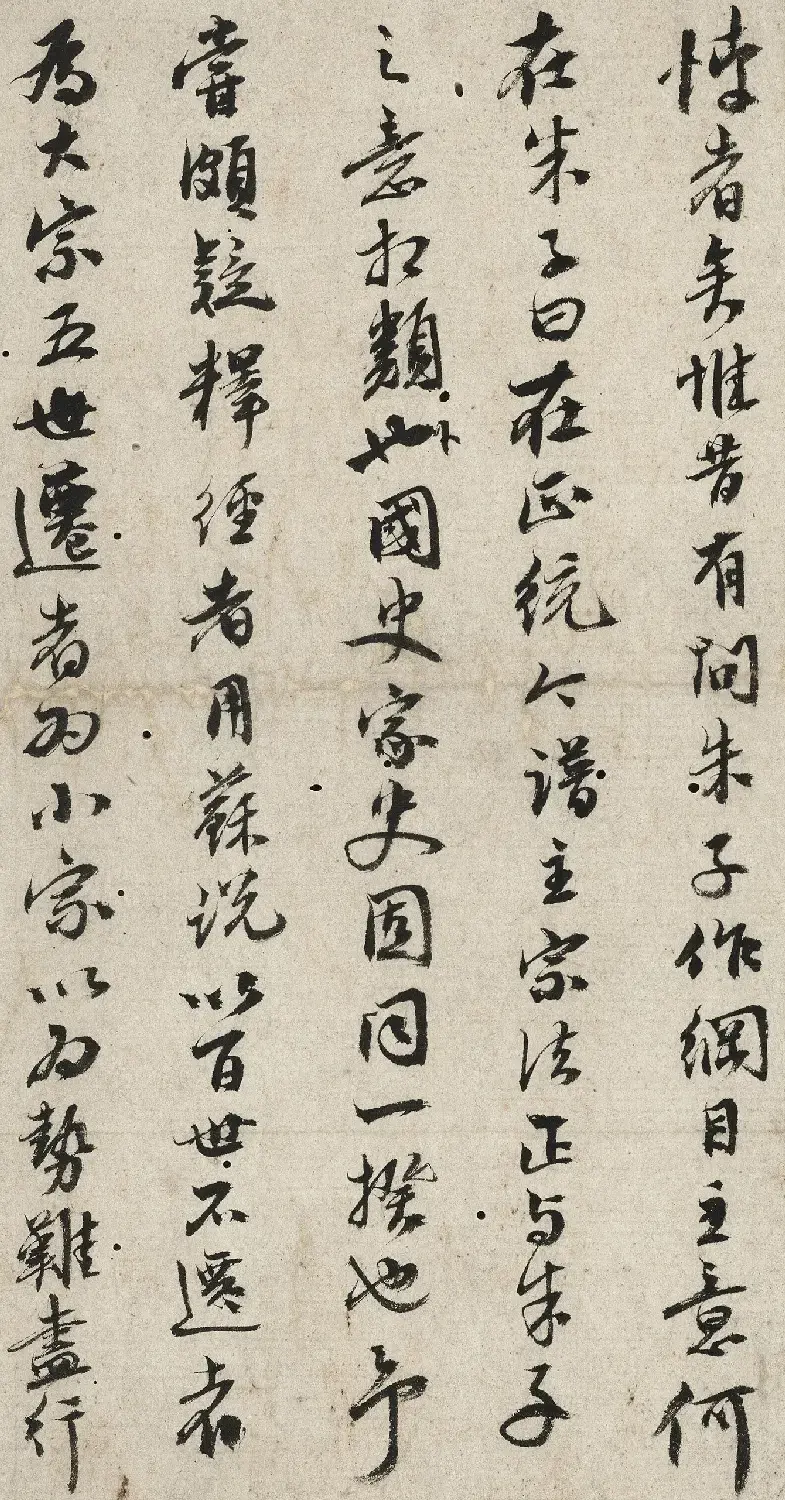 悖者矣惟昔有問朱子作綱目主意何
在朱子曰在正統今譜主宗法正与朱子
之意相類也國史家史固同一揆也予
嘗頗疑釋經者用蘇説以百世不遷者
為大宗五世遷者為小宗以為勢難盡行